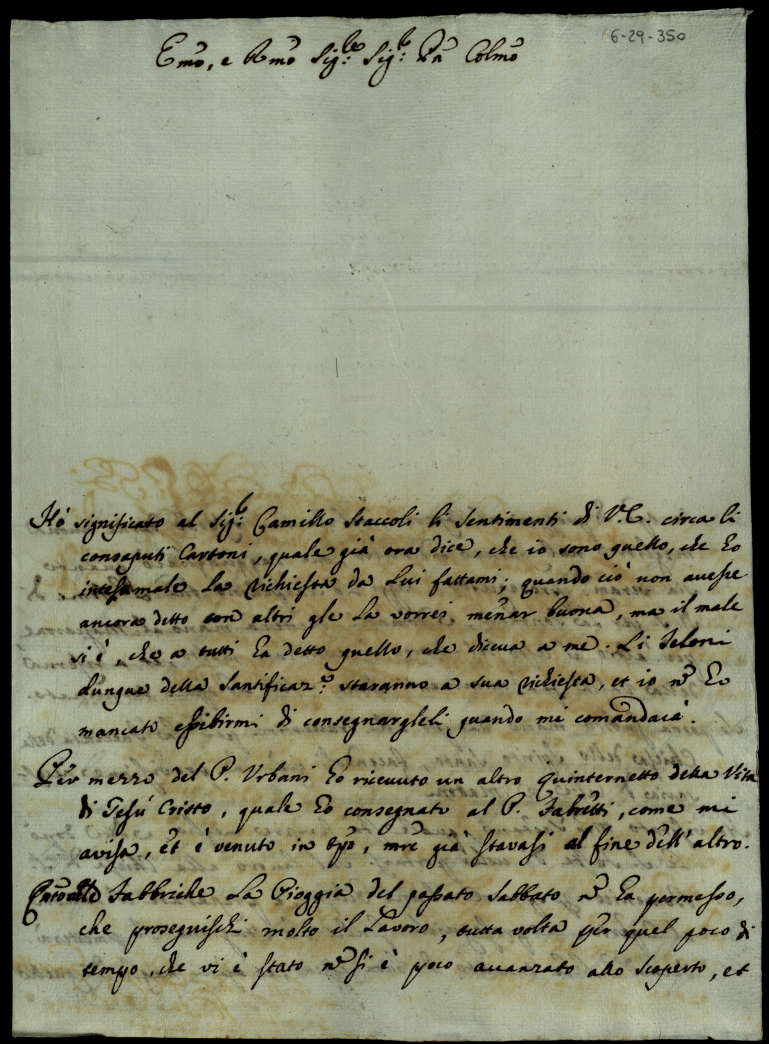 6-29-350
Emo, e Rmo Sig:re Sig:r Pn Colmo
Hò significato al Sig:r Camillo Staccoli li sentimenti di V.E. circa li
consaputi Cartoni, quale già ora dice, che io sono quello, che ho
inteso male la richiesta da lui fattami; quando ciò non avesse
ancora detto con altri gle la vorrei menar buona, ma il male
si è, che a tutti ha detto quello, che diceva a me. Li Teloni
dunque della Santificaz.e staranno a sua richiesta, et io nõ ho
mancato essibirmi di consegnargleli quando mi comandarà.
Per mezzo del P. Urbani ho ricevuto un altro Quinternetto della Vita
di Jesú Cristo, quale ho consegnato al P. Fabretti, come mi
avisa, et è venuto in tpo, mrẽ già stavasi al fine dell' altro.
Fabbriche la Pioggia del passato Sabbato nõ ha permesso,
che proseguischi molto il Lavoro, tutta volta per quel poco di
tempo, che vi è stato nõ si è poco avanzato allo scoperto, et